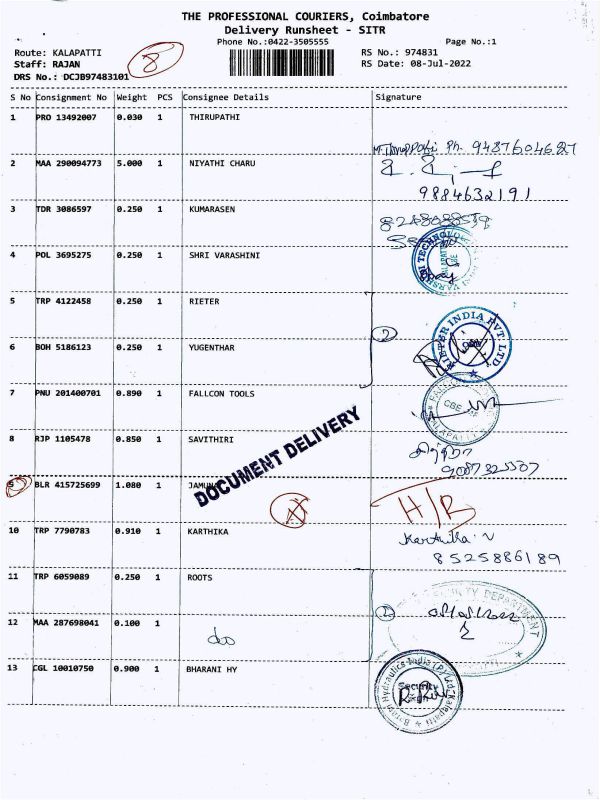 THE PROFESSIONAL COURIERS, Coimbatore
Delivery Runsheet - SITR
Phone No.:0422-3505555 Page No.:1
Route: KALAPATTI RS No.: 974831
Staff: RAJAN RS Date: 08-Jul-2022
DRS No.: DCJB97483101
8
S No Consignment No Weight PCS Consignee Details Signature
1 PRO 13492007 0.030 1 THIRUPATHI
Ph. 9487604627
2 MAA 290094773 5.000 1 NIYATHI CHARU
9884632191
3 TDR 3086597 0.250 1 KUMARASEN
4 POL 3695275 0.250 1 SHRI VARASHINI
5 TRP 4122458 0.250 1 RIETER
2
RIETER INDIA PVT LTD.
6 BOH 5186123 0.250 1 YUGENTHAR
7 PNU 201400701 0.890 1 FALLCON TOOLS
CBE
8 RJP 1105478 0.850 1 SAVITHIRI
DOCUMENT DELIVERY
9 BLR 415725699 1.080 1 JAMUNA
10 TRP 7790783 0.910 1 KARTHIKA
Karthika
8525886189
11 TRP 6059089 0.250 1 ROOTS
SECURITY DEPARTMENT
2
12 MAA 287698041 0.100 1
do
13 CGL 10010750 0.900 1 BHARANI HY
Hydraulics India (P) Ltd.
Security